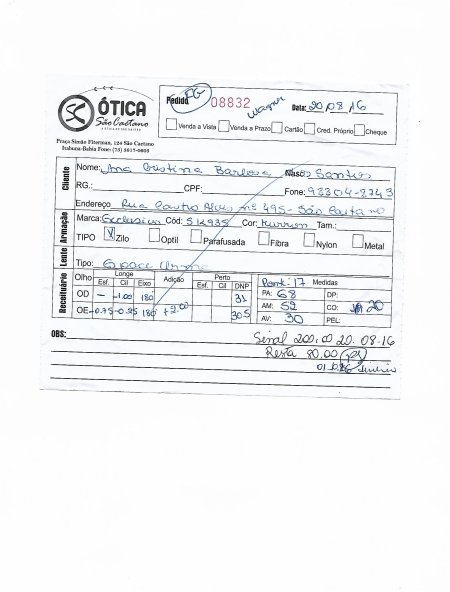 ÓTICA
São Caetano
A ÓTICA DE SÃO CAETANO
Praça Simão Fiterman, 124 São Caetano
Itabuna-Bahia Fone: (73) 3617-0805
Pedido FG 08832 Wagner Data: 20.08.16
Venda a Vista Venda a Prazo Cartão Cred. Próprio Cheque
Cliente
Nome: Ana Cristina Barbosa Nasc: Santos
RG.: CPF: Fone: 98804-8743
Endereço Rua Castro Alves nº 495 - São Caetano
Armação
Marca: Exclusive Cód: SK935 Cor: Marrom Tam.:
TIPO X Zilo Optil Parafusada Fibra Nylon Metal
Lente
Tipo: Space
Receituário
Olho Longe Adição Perto DNP
Esf. Cil Eixo Esf. Cil
OD — -1.00 180 31
OE -0.75 -0.25 180 +2.00 30.5
Pont: 17 Medidas
PA: 68 DP:
AM: 52 CO: 20
AV: 30 PEL:
OBS: Sinal 200,00 20.08.16
Resta 80,00 pg
dinheiro